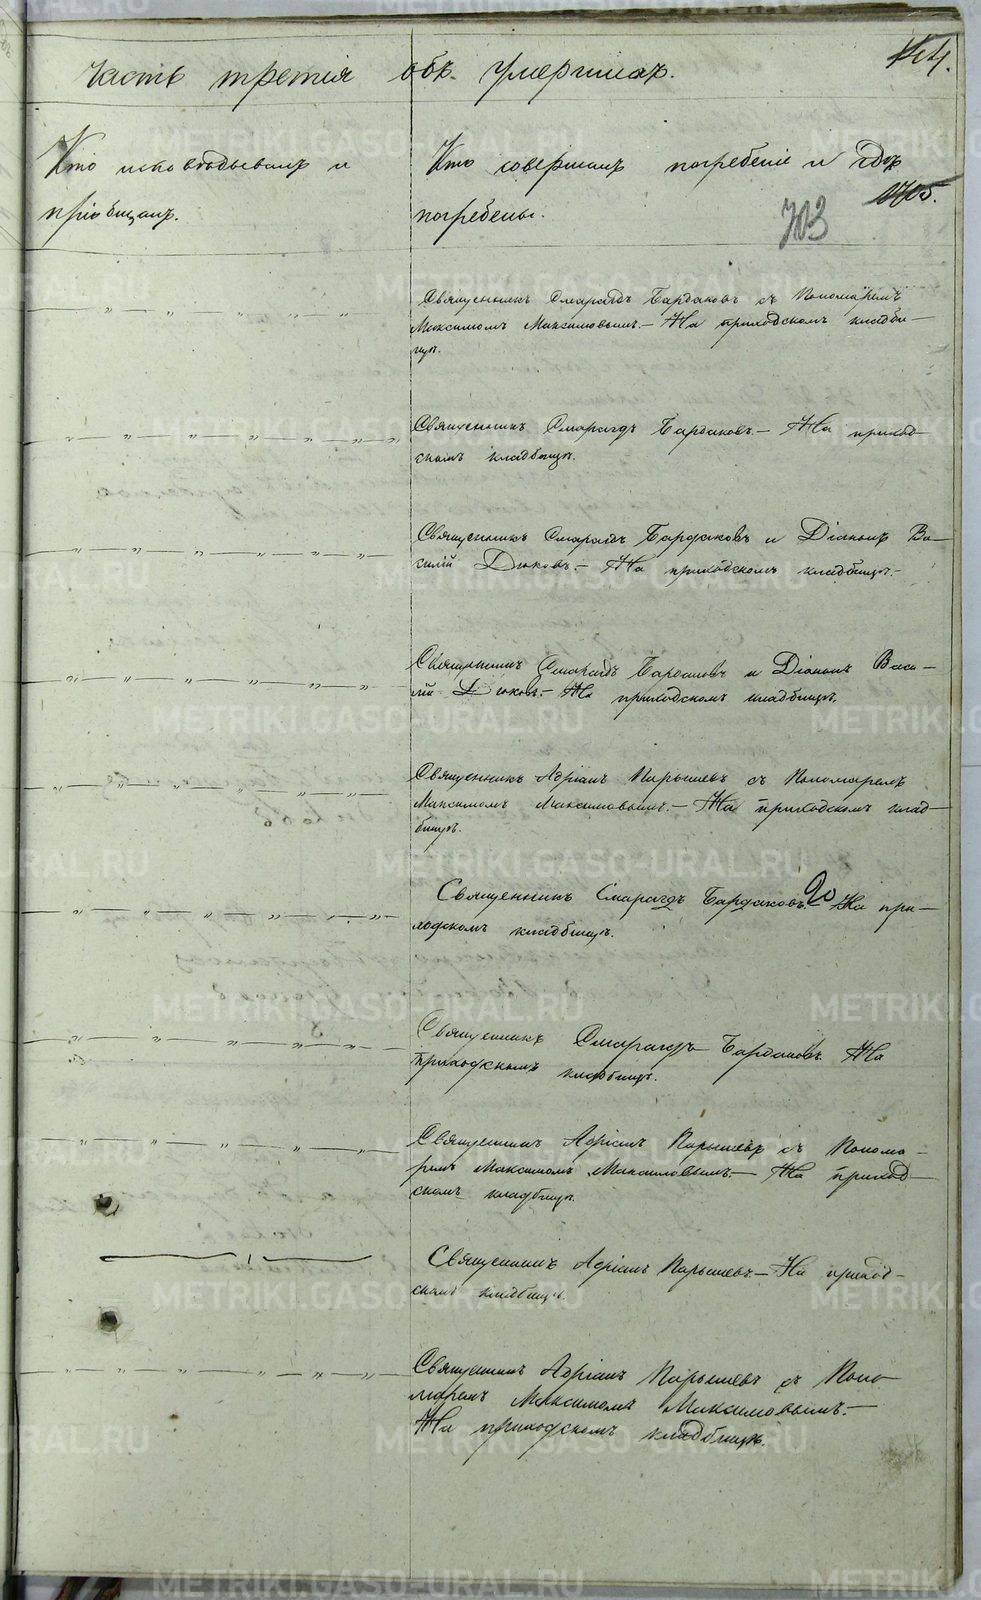 Часть третія объ умершихъ.
144.
Кто исповѣдывалъ и
пріобщалъ.
Кто совершалъ погребеніе и гдѣ
погребены.
1705.
703
Священникъ Смарагдъ Бардаковъ съ Пономаремъ
Максимомъ Максимовымъ. — На приходскомъ кладби-
щѣ.
Священникъ Смарагдъ Бардаковъ. — На приход-
скомъ кладбищѣ.
Священникъ Смарагдъ Бардаковъ и Діаконъ Ва-
силій Дюковъ. — На приходскомъ кладбищѣ. —
Священникъ Смарагдъ Бардаковъ и Діаконъ Васи-
лій Дюковъ. — На приходскомъ кладбищѣ.
Священникъ Адріанъ Парышевъ съ Пономаремъ
Максимомъ Максимовымъ. — На приходскомъ клад-
бищѣ.
Священникъ Смарагдъ Бардаковъ. — На при-
ходскомъ кладбищѣ.
Священникъ Смарагдъ Бардаковъ. На
приходскомъ кладбищѣ.
Священникъ Адріанъ Парышевъ съ Понома-
ремъ Максимомъ Максимовымъ. — На приход-
скомъ кладбищѣ.
Священникъ Адріанъ Парышевъ. — На приход-
скомъ кладбищѣ.
Священникъ Адріанъ Парышевъ съ Поно-
маремъ Максимомъ Максимовымъ. —
На приходскомъ кладбищѣ.
METRIKI.GASO-URAL.RU